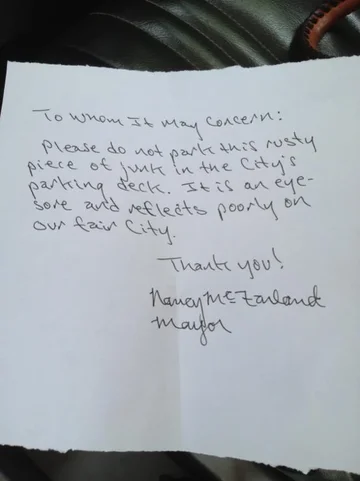 To Whom It May Concern:
Please do not park this rusty
piece of junk in the City's
parking deck. It is an eye-
sore and reflects poorly on
our fair City.
Thank you!
Nancy McFarland
Mayor